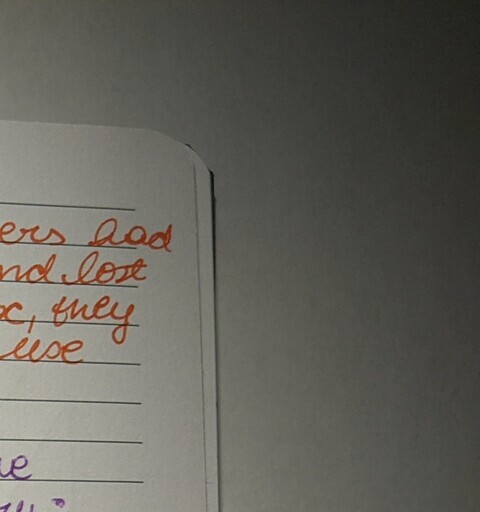 ers had
nd lost
x, they
use
ue